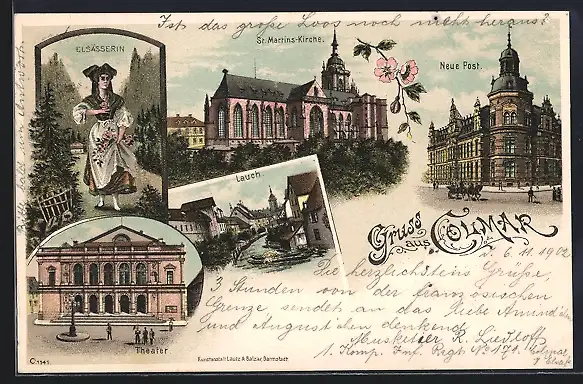 Ist das große Loos noch nicht heraus?
ELSÄSSERIN
St. Martins-Kirche.
Neue Post.
Lauch.
Gruss
aus COLMAR
v. 6.11.1902
Die herzlichsten Grüße,
3 Stunden von der französischen
Grenze sendet an das liebe
und denkend
Musketier R.
1. Komp. Inf. Regt. No 171. Colmar
i/Elsaß
Theater
C. 1541.
Kunstanstalt Lautz & Balzar, Darmstadt
Bitte bald um Antwort.